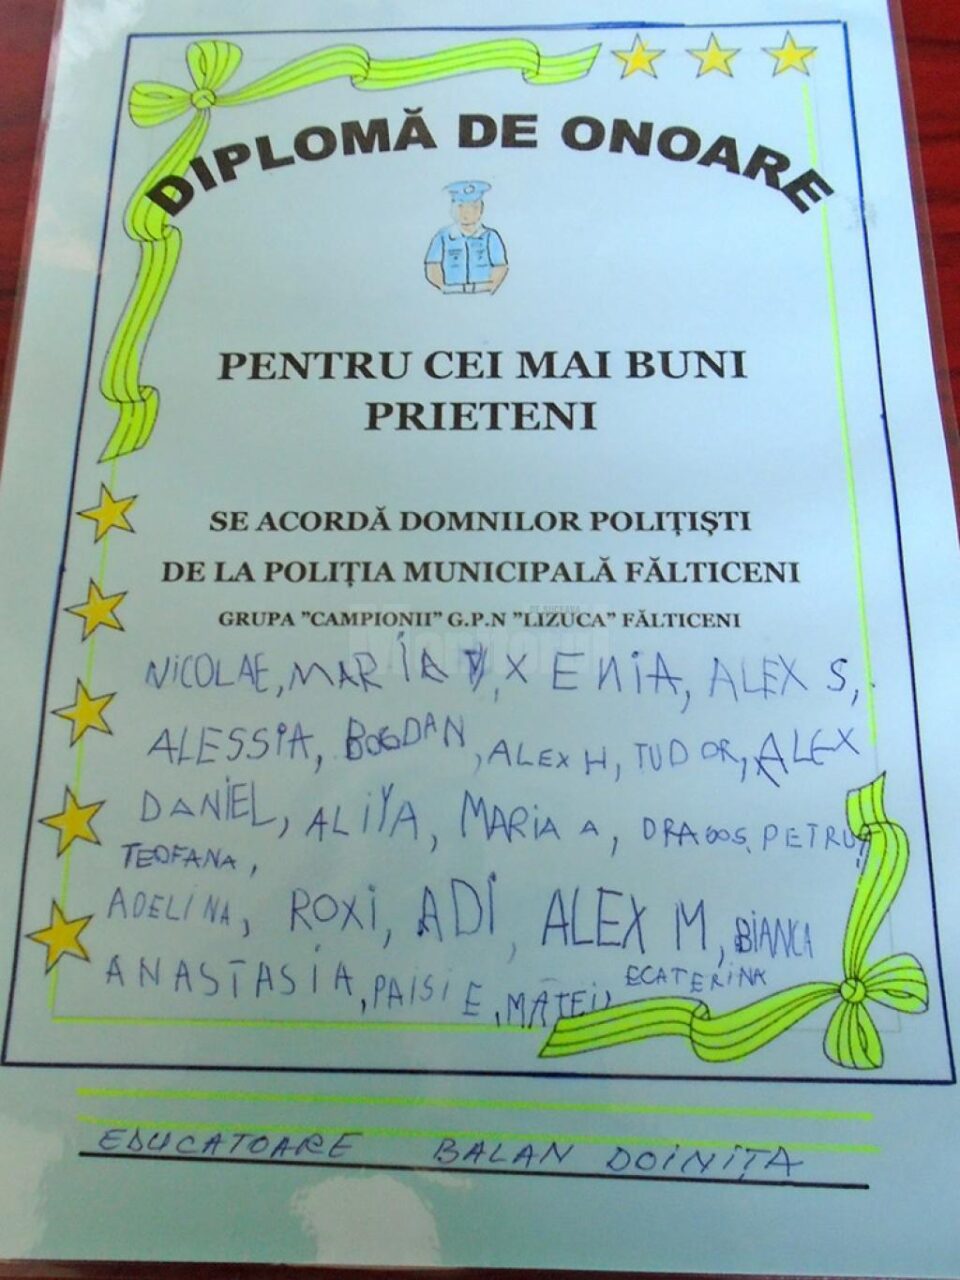 DIPLOMĂ DE ONOARE
PENTRU CEI MAI BUNI
PRIETENI
SE ACORDĂ DOMNILOR POLIȚIȘTI
DE LA POLIȚIA MUNICIPALĂ FĂLTICENI
GRUPA "CAMPIONII" G.P.N "LIZUCA" FĂLTICENI
NICOLAE, MARIA V, XENIA, ALEX S,
ALESSIA, BOGDAN, ALEX H, TUDOR, ALEX
DANIEL, ALIYA, MARIA A, DRAGOS, PETRUȚ
TEOFANA,
ADELINA, ROXI, ADI, ALEX M, BIANCA
ANASTASIA, PAISIE, MATEI, ECATERINA
EDUCATOARE BALAN DOINIȚA